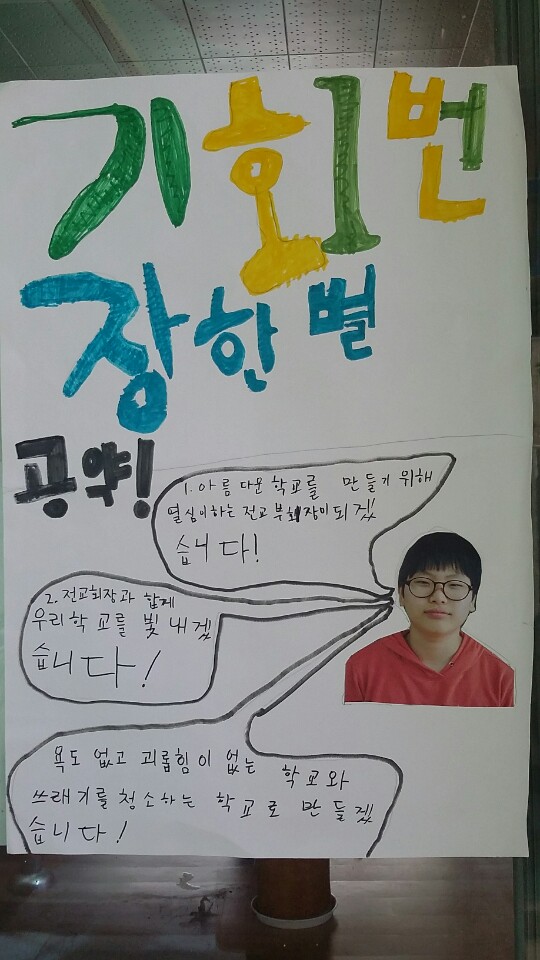 기회번
장한별
공약!
1. 아름다운 학교를 만들기 위해
열심이하는 전교 부회장이 되겠
습니다!
2. 전교회장과 함께
우리학교를 빛내겠
습니다!
욕도 없고 괴롭힘이 없는 학교와
쓰래기를 청소하는 학교로 만들겠
습니다!